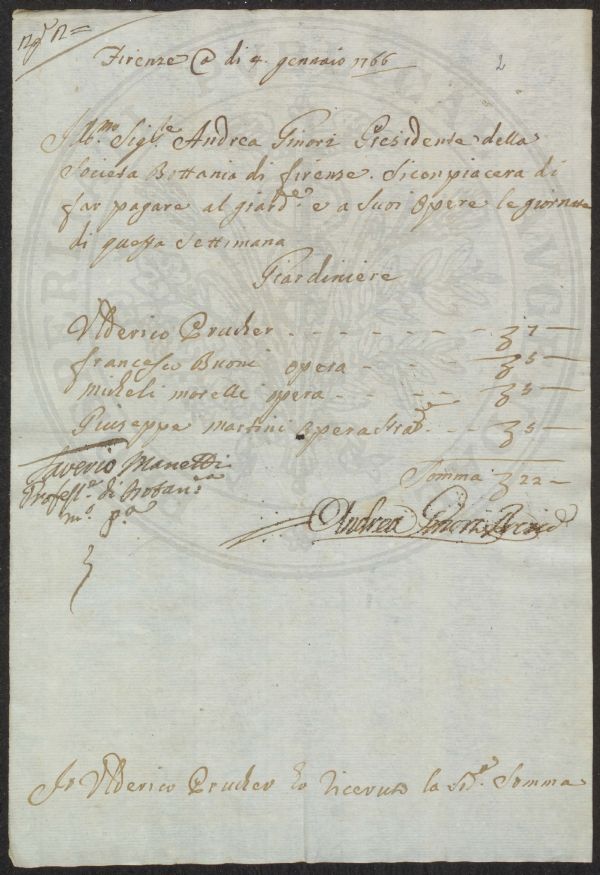 Nº 12=
Firenze @ di 4. gennaio 1766
2
Ill.mo Sig.re Andrea Ginori Presidente della
Societa Bottania di firenze. Siconpiacera di
far pagare al giard.re e a Suoi Opere le giornate
di questa Settimana
Giardiniere
Vlderico Prucker - - - - - - 7 -
francesco Buoni opera - - - 5 -
Micheli morelli opera - - - - 5 -
Giuseppe martini opera Stra.de - - 5 -
Saverio Manetti
Somma 22 -
Profess.e di Botan.ca
m.o p.a
Andrea Ginori Presid
Io Vlderico Prucker ho ricevuto la Sd.a Somma